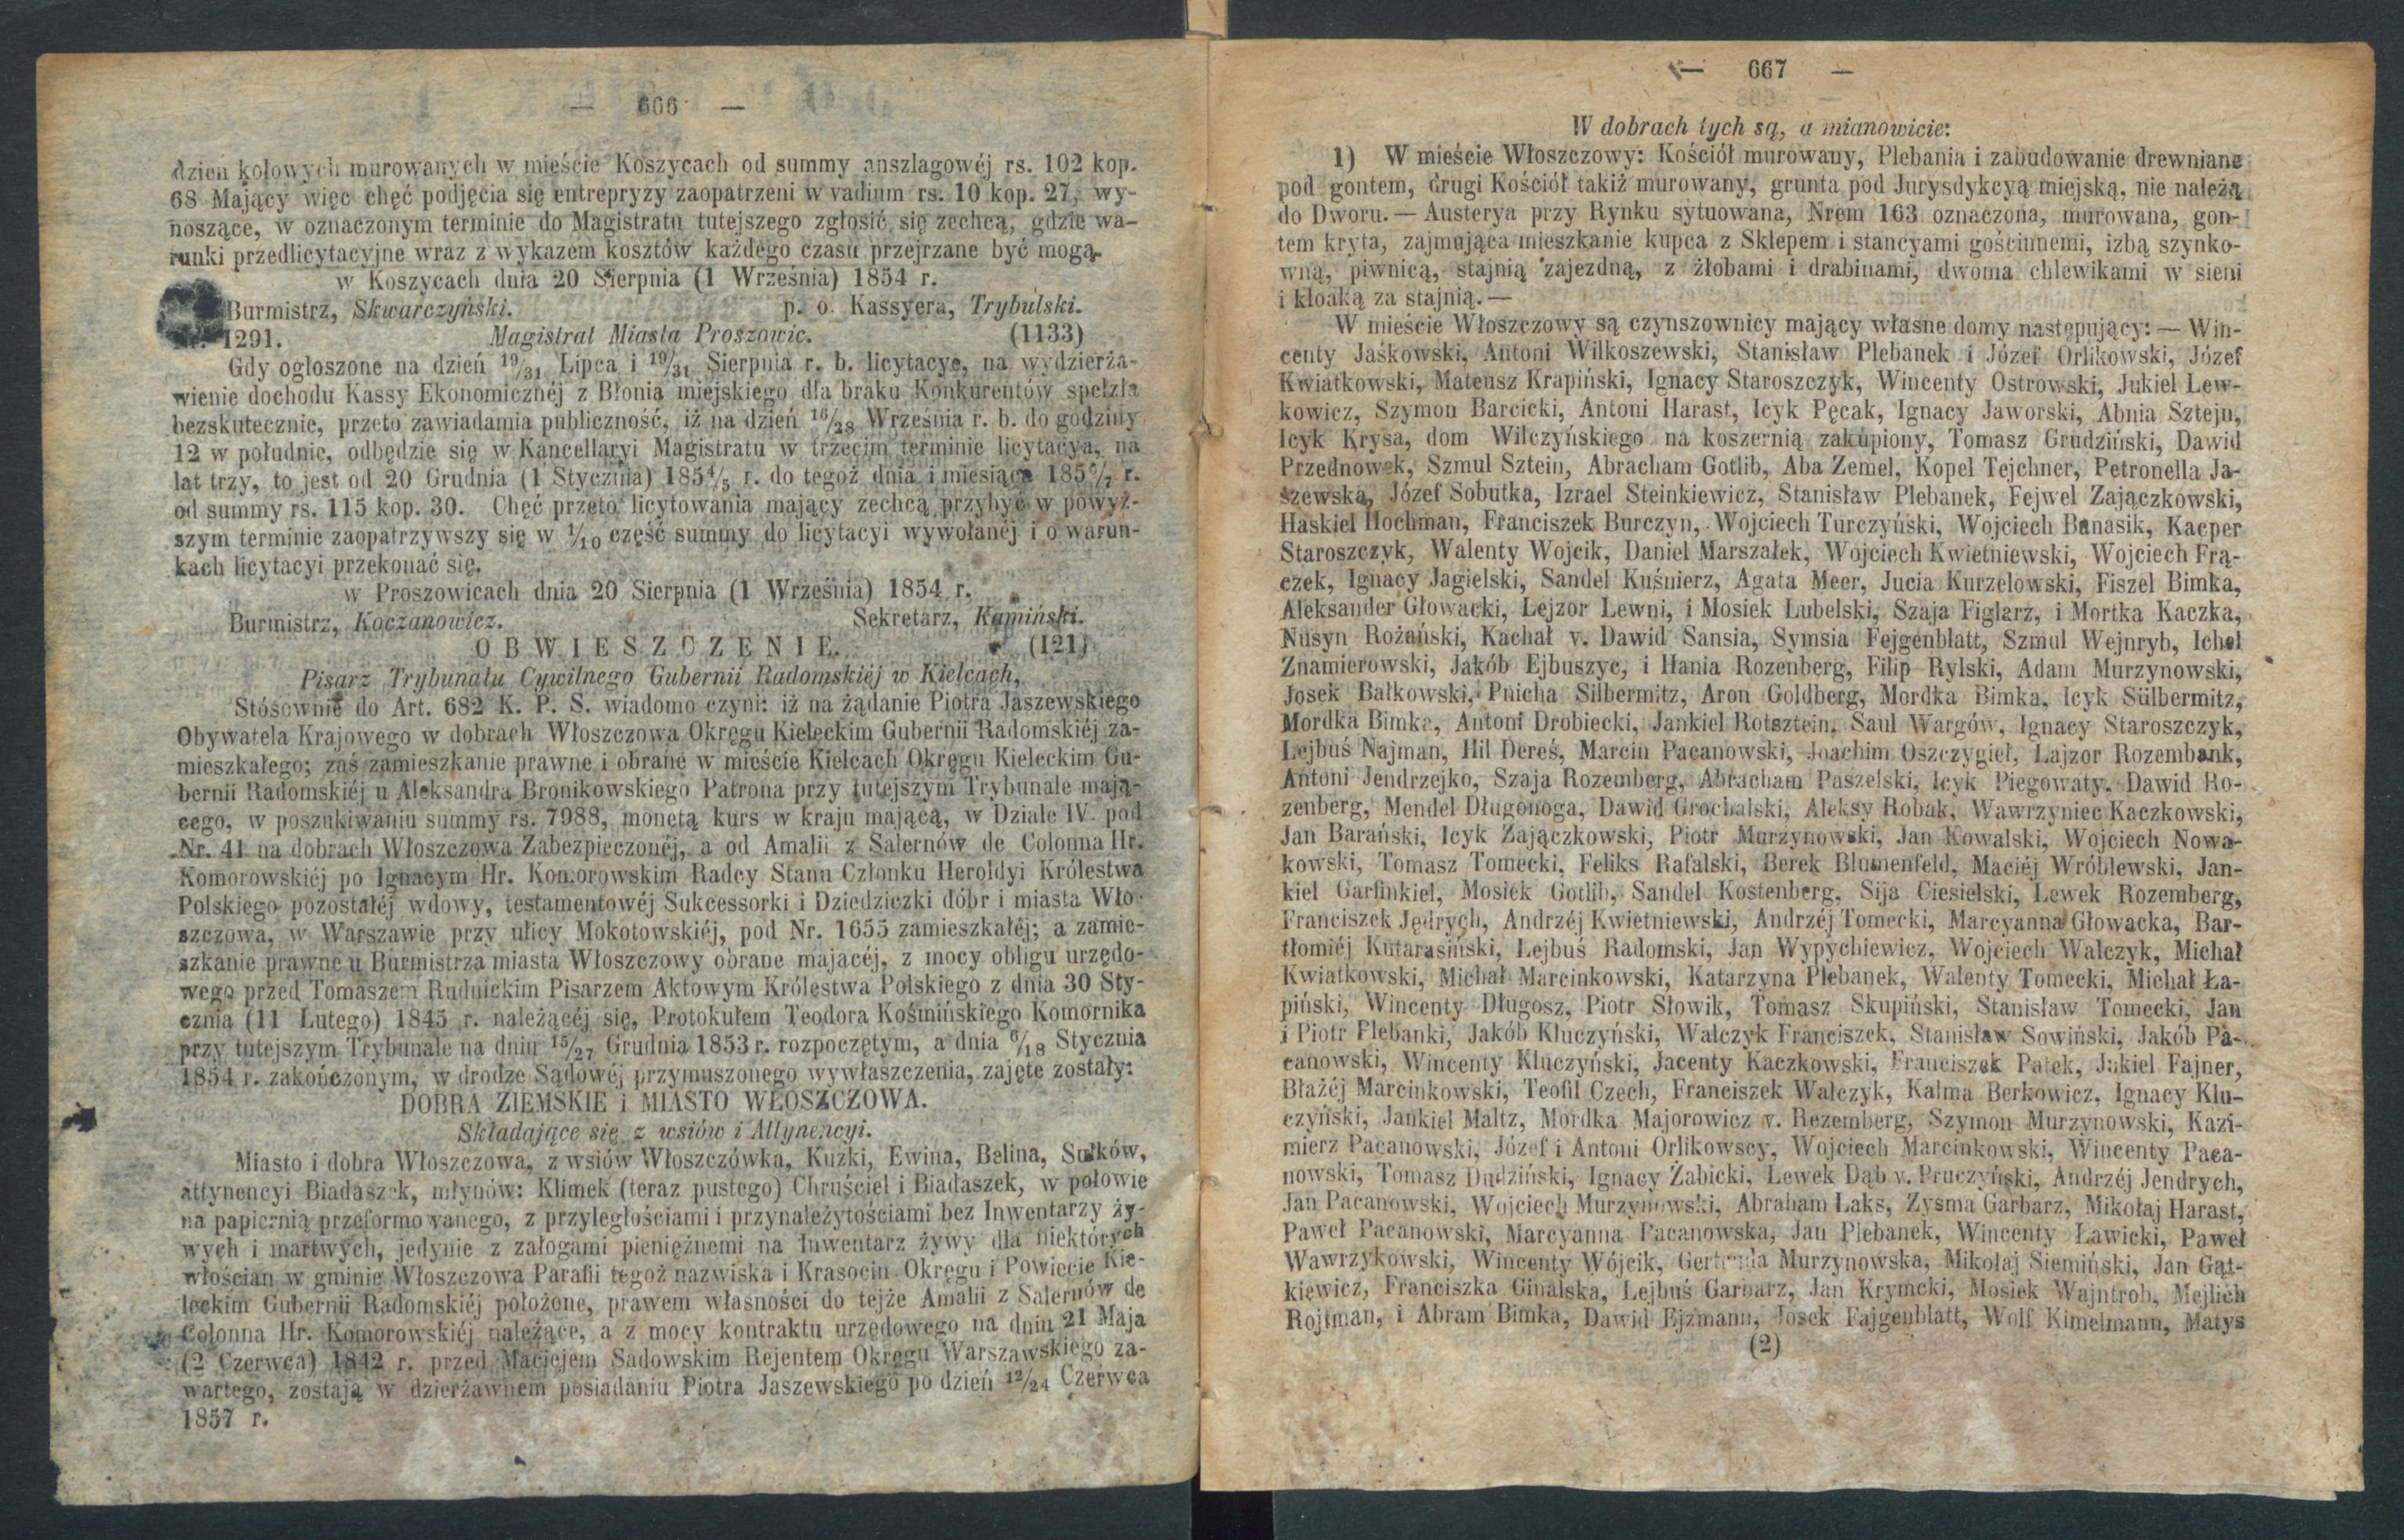 — 666 —
dzien kołowych murowanych w mieście Koszycach od summy anszlagowéj rs. 102 kop.
68 Mający więc chęć podjęcia się entrepryzy zaopatrzeni w vadium rs. 10 kop. 27, wy-
noszące, w oznaczonym terminie do Magistratu tutejszego zgłosić się zechcą, gdzie wa-
runki przedlicytacyjne wraz z wykazem kosztów każdego czasu przejrzane być mogą.
w Koszycach dnia 20 Sierpnia (1 Września) 1854 r.
Burmistrz, Skwarczyński. p. o. Kassyera, Trybulski.
1291. Magistrat Miasta Proszowic. (1133)
Gdy ogłoszone na dzień 19/31 Lipca i 19/31 Sierpnia r. b. licytacye, na wydzierża-
wienie dochodu Kassy Ekonomicznéj z Błonia miejskiego dla braku Konkurentów spełzła
bezskutecznie, przeto zawiadamia publiczność, iż na dzień 16/28 Września r. b. do godziny
12 w południe, odbędzie się w Kancellaryi Magistratu w trzecim terminie licytacya, na
lat trzy, to jest od 20 Grudnia (1 Stycznia) 185 4/5 r. do tegoż dnia i miesiąca 185 6/7 r.
od summy rs. 115 kop. 30. Chęć przeto licytowania mający zechcą przybyć w powyż-
szym terminie zaopatrzywszy się w 1/10 część summy do licytacyi wywołanéj i o warun-
kach licytacyi przekonać się.
w Proszowicach dnia 20 Sierpnia (1 Września) 1854 r.
Burmistrz, Koczanowicz. Sekretarz, Kamiński.
OBWIESZCZENIE. (121)
Pisarz Trybunału Cywilnego Gubernii Radomskiéj w Kielcach,
Stósownie do Art. 682 K. P. S. wiadomo czyni: iż na żądanie Piotra Jaszewskiego
Obywatela Krajowego w dobrach Włoszczowa Okręgu Kieleckim Gubernii Radomskiéj za-
mieszkałego; zaś zamieszkanie prawne i obrane w mieście Kielcach Okręgu Kieleckim Gu-
bernii Radomskiéj u Aleksandra Bronikowskiego Patrona przy tutejszym Trybunale mają-
cego, w poszukiwaniu summy rs. 7988, monetą kurs w kraju mającą, w Dziale IV. pod
Nr. 41 na dobrach Włoszczowa Zabezpieczonéj, a od Amalii z Salernów de Colonna Hr.
Komorowskiéj po Ignacym Hr. Komorowskim Radcy Stanu Członku Heroldyi Królestwa
Polskiego pozostałéj wdowy, testamentowéj Sukcessorki i Dziedziczki dóbr i miasta Wło-
szczowa, w Warszawie przy ulicy Mokotowskiéj, pod Nr. 1655 zamieszkałéj; a zamie-
szkanie prawne u Burmistrza miasta Włoszczowy obrane majacéj, z mocy obligu urzędo-
wego przed Tomaszem Rudnickim Pisarzem Aktowym Królestwa Polskiego z dnia 30 Sty-
cznia (11 Lutego) 1845 r. należącéj się, Protokułem Teodora Kośmińskiego Komornika
przy tutejszym Trybunale na dniu 15/27 Grudnia 1853 r. rozpoczętym, a dnia 6/18 Stycznia
1854 r. zakończonym, w drodze Sądowéj przymuszonego wywłaszczenia, zajęte zostały:
DOBRA ZIEMSKIE i MIASTO WŁOSZCZOWA.
Składające się z wsiów i Attynencyi.
Miasto i dobra Włoszczowa, z wsiów Włoszczówka, Kuzki, Ewina, Belina, Sułków,
attynencyi Biadaszek, młynów: Klimek (teraz pustego) Chruściel i Biadaszek, w połowie
na papiernią przeformowanego, z przyległościami i przynależytościami bez Inwentarzy ży-
wych i martwych, jedynie z załogami pieniężnemi na Inwentarz żywy dla niektórych
włościan w gminie Włoszczowa Parafii tegoż nazwiska i Krasocin Okręgu i Powiecie Kie-
leckim Gubernii Radomskiéj położone, prawem własności do tejże Amalii z Salernów de
Colonna Hr. Komorowskiéj należące, a z mocy kontraktu urzędowego na dniu 21 Maja
(2 Czerwca) 1842 r. przed Maciejem Sadowskim Rejentem Okręgu Warszawskiego za-
wartego, zostają w dzierżawnem posiadaniu Piotra Jaszewskiego po dzień 12/24 Czerwca
1857 r.
— 667 —
W dobrach tych są, a mianowicie:
1) W mieście Włoszczowy: Kościół murowany, Plebania i zabudowanie drewniane
pod gontem, drugi Kościół takiż murowany, grunta pod Jurysdykcyą miejską, nie należą
do Dworu. — Austerya przy Rynku sytuowana, Nrem 163 oznaczona, murowana, gon-
tem kryta, zajmująca mieszkanie kupca z Sklepem i stancyami gościnnemi, izbą szynko-
wną, piwnicą, stajnią zajezdną, z żłobami i drabinami, dwoma chlewikami w sieni
i kloaką za stajnią. —
W mieście Włoszczowy są czynszownicy mający własne domy następujący: — Win-
centy Jaśkowski, Antoni Wilkoszewski, Stanisław Plebanek i Józef Orlikowski, Józef
Kwiatkowski, Mateusz Krapiński, Ignacy Staroszczyk, Wincenty Ostrowski, Jukiel Lew-
kowicz, Szymon Barcicki, Antoni Harast, Icyk Pęcak, Ignacy Jaworski, Abnia Sztejn,
Icyk Krysa, dom Wilczyńskiego na koszernią zakupiony, Tomasz Grudziński, Dawid
Przednowek, Szmul Sztein, Abracham Gotlib, Aba Zemel, Kopel Tejchner, Petronella Ja-
szewska, Józef Sobutka, Izrael Steinkiewicz, Stanisław Plebanek, Fejwel Zajączkowski,
Haskiel Hochman, Franciszek Burczyn, Wojciech Turczyński, Wojciech Banasik, Kacper
Staroszczyk, Walenty Wojcik, Daniel Marszałek, Wojciech Kwietniewski, Wojciech Frą-
czek, Ignacy Jagielski, Sandel Kuśnierz, Agata Meer, Jucia Kurzelowski, Fiszel Bimka,
Aleksander Głowacki, Lejzor Lewni, i Mosiek Lubelski, Szaja Figlarz, i Mortka Kaczka,
Nusyn Rożański, Kachał v. Dawid Sansia, Symsia Fejgenblatt, Szmul Wejnryb, Ichel
Znamierowski, Jakób Ejbuszyc, i Hania Rozenberg, Filip Rylski, Adam Murzynowski,
Josek Bałkowski, Pnicha Silbermitz, Aron Goldberg, Mordka Bimka, Icyk Sülbermitz,
Mordka Bimka, Antoni Drobiecki, Jankiel Rotsztein, Saul Wargów, Ignacy Staroszczyk,
Lejbuś Najman, Hil Dereś, Marcin Pacanowski, Joachim Oszczygieł, Lajzor Rozembank,
Antoni Jendrzejko, Szaja Rozemberg, Abracham Paszelski, Icyk Piegowaty, Dawid Ro-
zenberg, Mendel Długonoga, Dawid Grochalski, Aleksy Robak, Wawrzyniec Kaczkowski,
Jan Barański, Icyk Zajączkowski, Piotr Murzynowski, Jan Kowalski, Wojciech Nowa-
kowski, Tomasz Tomecki, Feliks Rafalski, Berek Blumenfeld, Maciéj Wróblewski, Jan-
kiel Garfinkiel, Mosiek Gotlib, Sandel Kostenberg, Sija Ciesielski, Lewek Rozemberg,
Franciszek Jędrych, Andrzéj Kwietniewski, Andrzéj Tomecki, Marcyanna Głowacka, Bar-
tłomiéj Kutarasiński, Lejbuś Radomski, Jan Wypychiewicz, Wojciech Walczyk, Michał
Kwiatkowski, Michał Marcinkowski, Katarzyna Plebanek, Walenty Tomecki, Michał Ła-
piński, Wincenty Długosz, Piotr Słowik, Tomasz Skupiński, Stanisław Tomecki, Jan
i Piotr Plebanki, Jakób Kluczyński, Walczyk Franciszek, Stanisław Sowiński, Jakób Pa-
canowski, Wincenty Kluczyński, Jacenty Kaczkowski, Franciszek Patek, Jukiel Fajner,
Błażéj Marcinkowski, Teofil Czech, Franciszek Walczyk, Kalma Berkowicz, Ignacy Klu-
czyński, Jankiel Maltz, Mordka Majorowicz v. Rezemberg, Szymon Murzynowski, Kazi-
mierz Pacanowski, Józef i Antoni Orlikowscy, Wojciech Marcinkowski, Wincenty Paca-
nowski, Tomasz Dudziński, Ignacy Żabicki, Lewek Dąb v. Pruczyński, Andrzéj Jendrych,
Jan Pacanowski, Wojciech Murzynowski, Abraham Laks, Zysma Garbarz, Mikołaj Harast,
Paweł Pacanowski, Marcyanna Pacanowska, Jan Plebanek, Wincenty Ławicki, Paweł
Wawrzykowski, Wincenty Wójcik, Gertruda Murzynowska, Mikołaj Siemiński, Jan Gąt-
kiewicz, Franciszka Ginalska, Lejbuś Garbarz, Jan Krymcki, Mosiek Wajntrob, Mejlich
Rojtman, i Abram Bimka, Dawid Ejzmann, Josek Fajgenblatt, Wolf Kimelmann, Matys
(2)